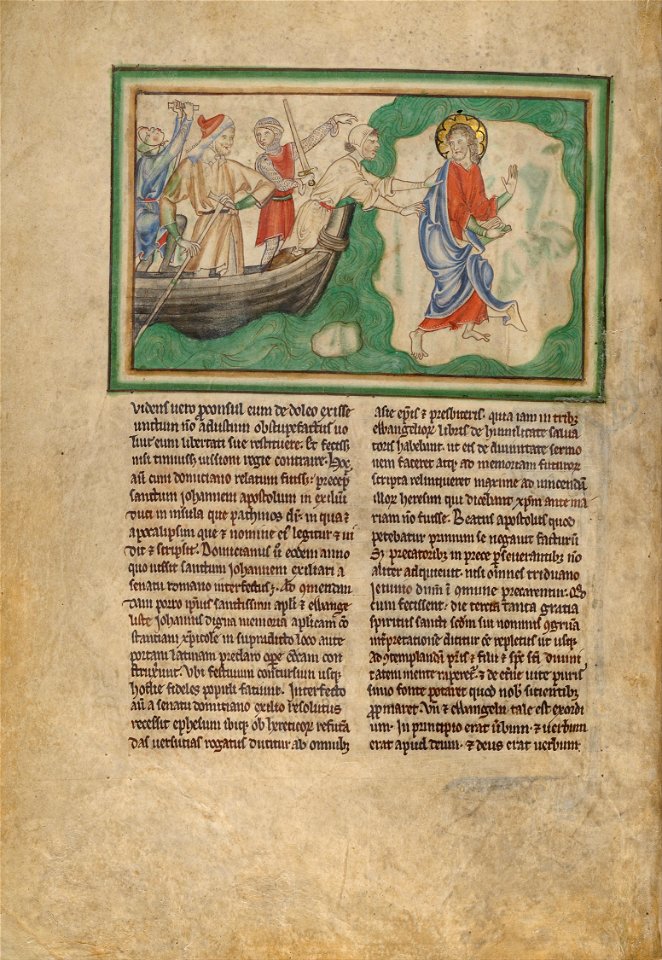 Videns vero proconsul eum de doleo exisse
unctum nō adustum obstupefactus vo
luit eum libertati sue restituere. Et fecisset
nisi timuisset iussioni regie contraire. Hoc
aūt cum domiciano relatum fuisset: precepit
sanctum iohannem apostolum in exiliū
duci in insula que pathmos dr̄. in qua ⁊
apocalipsim que ⁊ nomine ei legitur ⁊ ui
dit ⁊ scripsit. Domicianus ū eodem anno
quo iussit sanctum iohannem exiliari a
senatu romano interfectus ē. Ad
iam porro ipsius sanctissimi apłi ⁊ ewange
liste iohannis digna memoria
in supradicto loco ante
portam latinam preclaro opere
struxerunt. Ubi festiuum concursum usqꝫ
hodie fideles populi faciunt. Interfecto
aū a senatu domitiano exilio resolutus
recessit ephesum ibiqꝫ ob hereticorꝫ refuta
das uersutias rogatus dicitur ab omnibꝫ
asie ep̄is ⁊ presbiteris. quia iam in tribꝫ
ewangeliorꝫ libris de humilitate salua
toris habebant. ut eis de diuinitate sermo
nem faceret atqꝫ ad memoriam futurorꝫ
scripta relinqueret maxime ad uincendam
illorꝫ heresim qui dicebant xp̄m ante ma
riam nō fuisse. Beatus apostolus quod
petebatur primum se negauit facturū
Sꝫ precatoribꝫ in prece perseuerantibꝫ nō
aliter adquieuit. nisi omnes triduano
ieiunio dn̄m ī comune precarentur. Qd
cum fecissent. die tercia tanta gratia
spiritus sancti scdm sui nominis ꝯgruā
interpretatione dicitur eē repletus ut usqꝫ
ad ꝯtemplandā pr̄is ⁊ filii ⁊ sp̄c sc̄i diuini
tatem mente raperetur. ⁊ de eterne uite puris
simo fonte potaret quod nob̄ sitientibꝫ
propinaret. Vn̄ ⁊ ewangelii tale est exordi
um. In principio erat uerbum. ⁊ uerbum
erat apud deum. ⁊ deus erat uerbum.